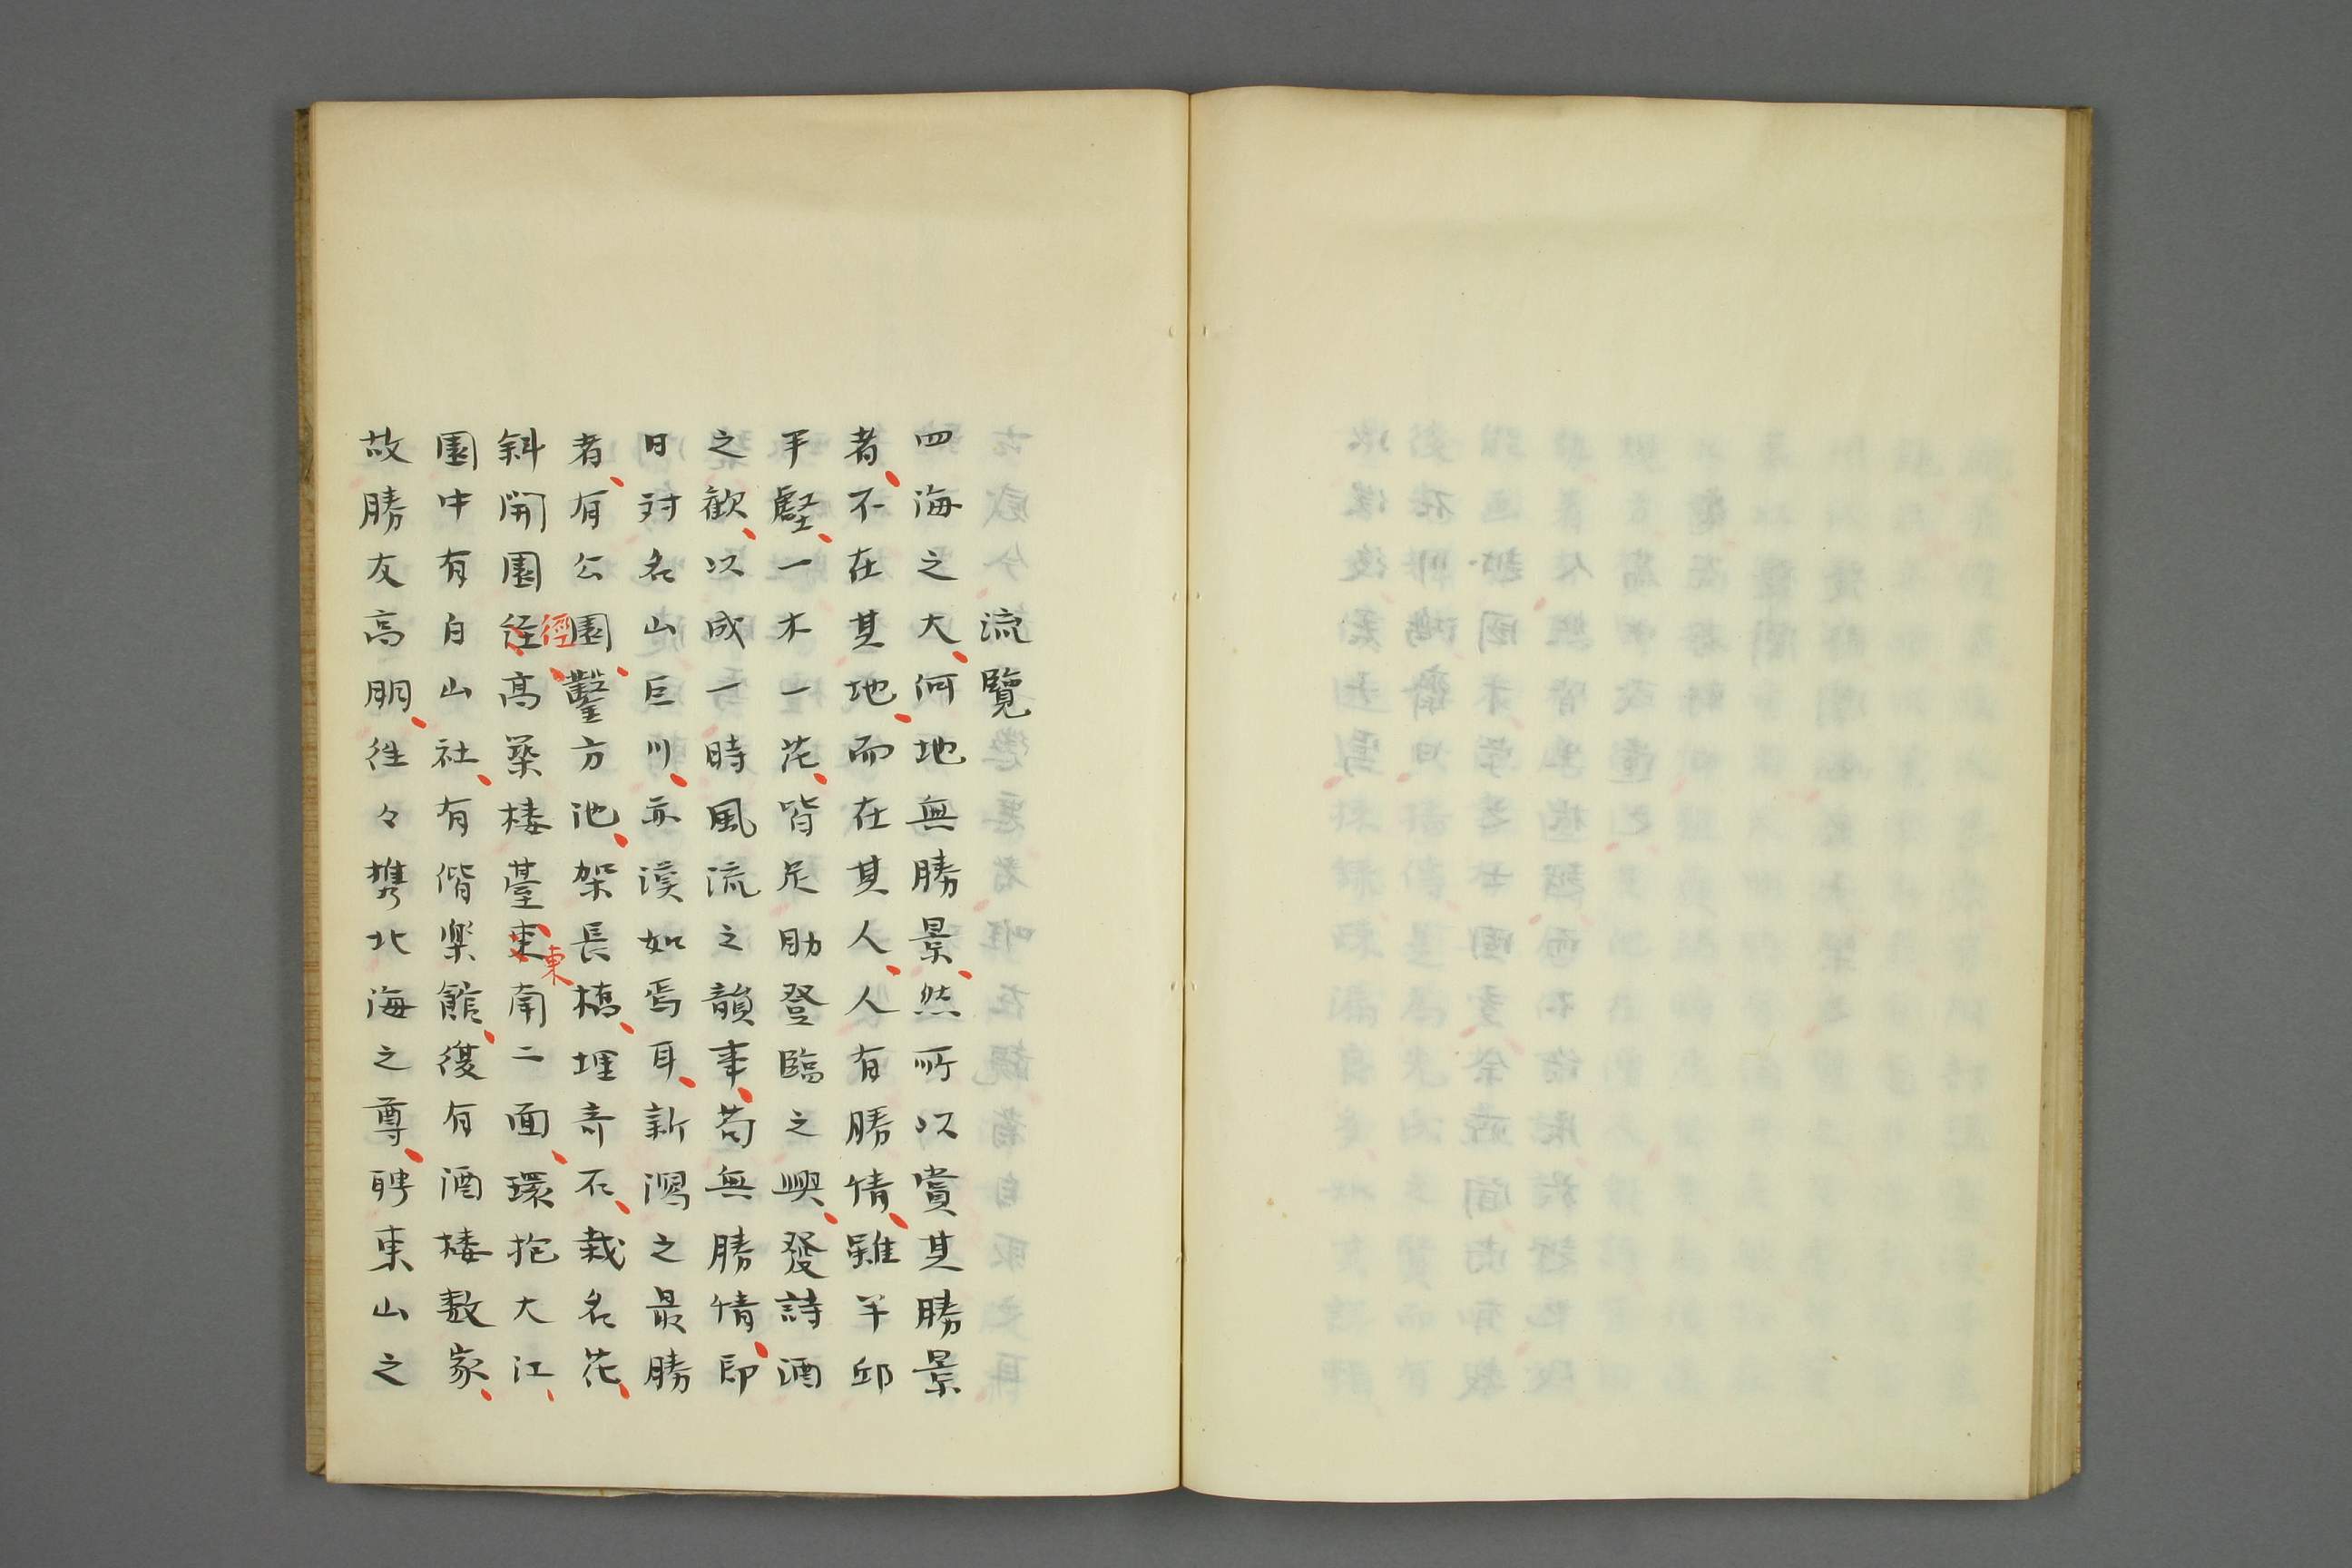 流覽
四海之大、何地無勝景、然所以賞其勝景
者、不在其地、而在其人、人有勝情、雖半邱
半壑、一木一花、皆足助登臨之興、發詩酒
之歡、以成一時風流之韻事、苟無勝情、即
日対名山巨川、亦漠如焉耳、新潟之最勝
者、有公園、鑿方池、架長橋、埋奇石、栽名花、
斜開園径、高築樓臺、東南二面、環抱大江、
徑
東
園中有白山社、有偕楽館、復有酒樓数家、
故勝友高朋、往々携北海之尊、聘東山之